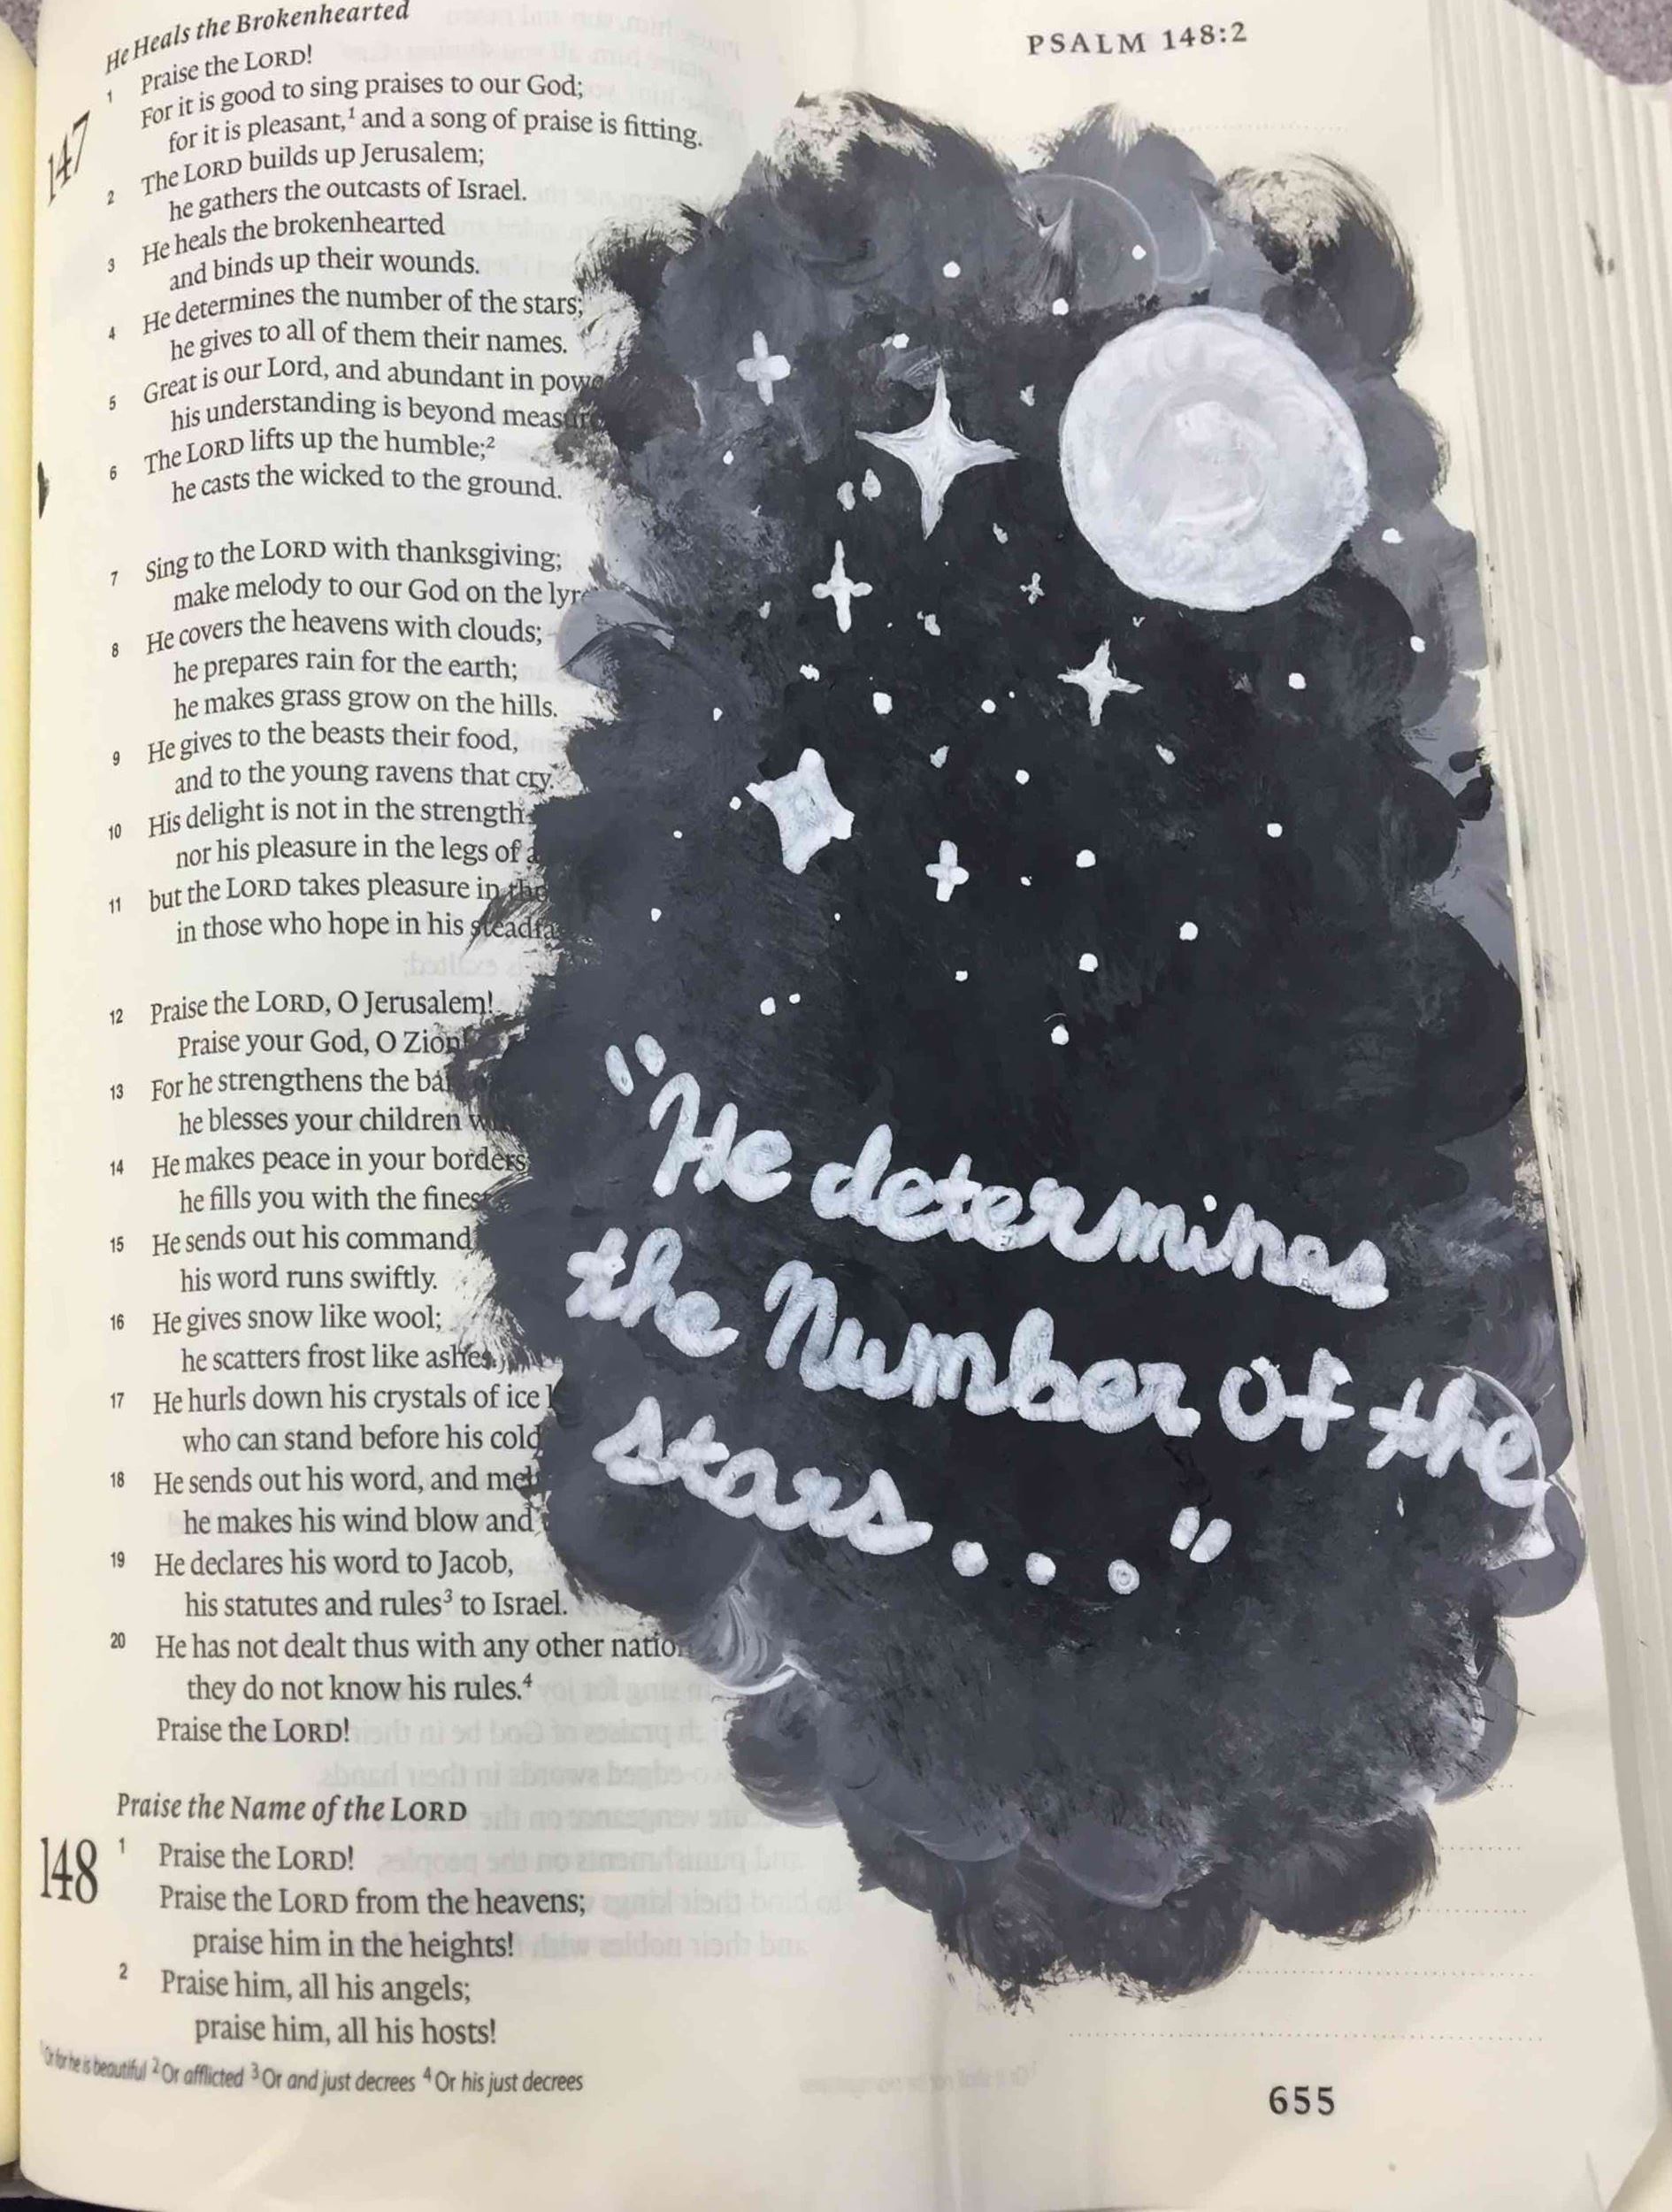 PSALM 148:2
He Heals the Brokenhearted
147
1 Praise the LORD!
For it is good to sing praises to our God;
for it is pleasant,¹ and a song of praise is fitting.
2 The LORD builds up Jerusalem;
he gathers the outcasts of Israel.
3 He heals the brokenhearted
and binds up their wounds.
4 He determines the number of the stars;
he gives to all of them their names.
5 Great is our Lord, and abundant in powe
his understanding is beyond measure
6 The LORD lifts up the humble;²
he casts the wicked to the ground.
7 Sing to the LORD with thanksgiving;
make melody to our God on the lyre
8 He covers the heavens with clouds;
he prepares rain for the earth;
he makes grass grow on the hills.
9 He gives to the beasts their food,
and to the young ravens that cry.
10 His delight is not in the strength
nor his pleasure in the legs of a
11 but the LORD takes pleasure in tho
in those who hope in his steadfa
12 Praise the LORD, O Jerusalem!
Praise your God, O Zion!
13 For he strengthens the bar
he blesses your children w
14 He makes peace in your borders
he fills you with the fines
15 He sends out his command
his word runs swiftly.
16 He gives snow like wool;
he scatters frost like ashes.
17 He hurls down his crystals of ice l
who can stand before his cold
18 He sends out his word, and mel
he makes his wind blow and
19 He declares his word to Jacob,
his statutes and rules³ to Israel.
20 He has not dealt thus with any other natio
they do not know his rules.⁴
Praise the LORD!
Praise the Name of the LORD
148
1 Praise the LORD!
Praise the LORD from the heavens;
praise him in the heights!
2 Praise him, all his angels;
praise him, all his hosts!
¹Or for he is beautiful ²Or afflicted ³Or and just decrees ⁴Or his just decrees
"He determines
the Number of the
stars...."
655